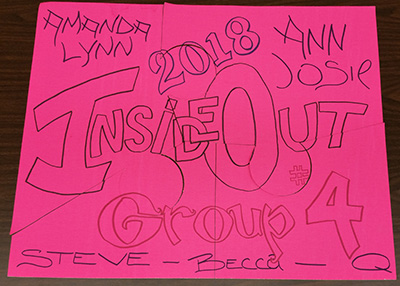 AMANDA LYNN
2018
ANN
JOSIE
INSIDEOUT
#
Group 4
STEVE - Becca - Q